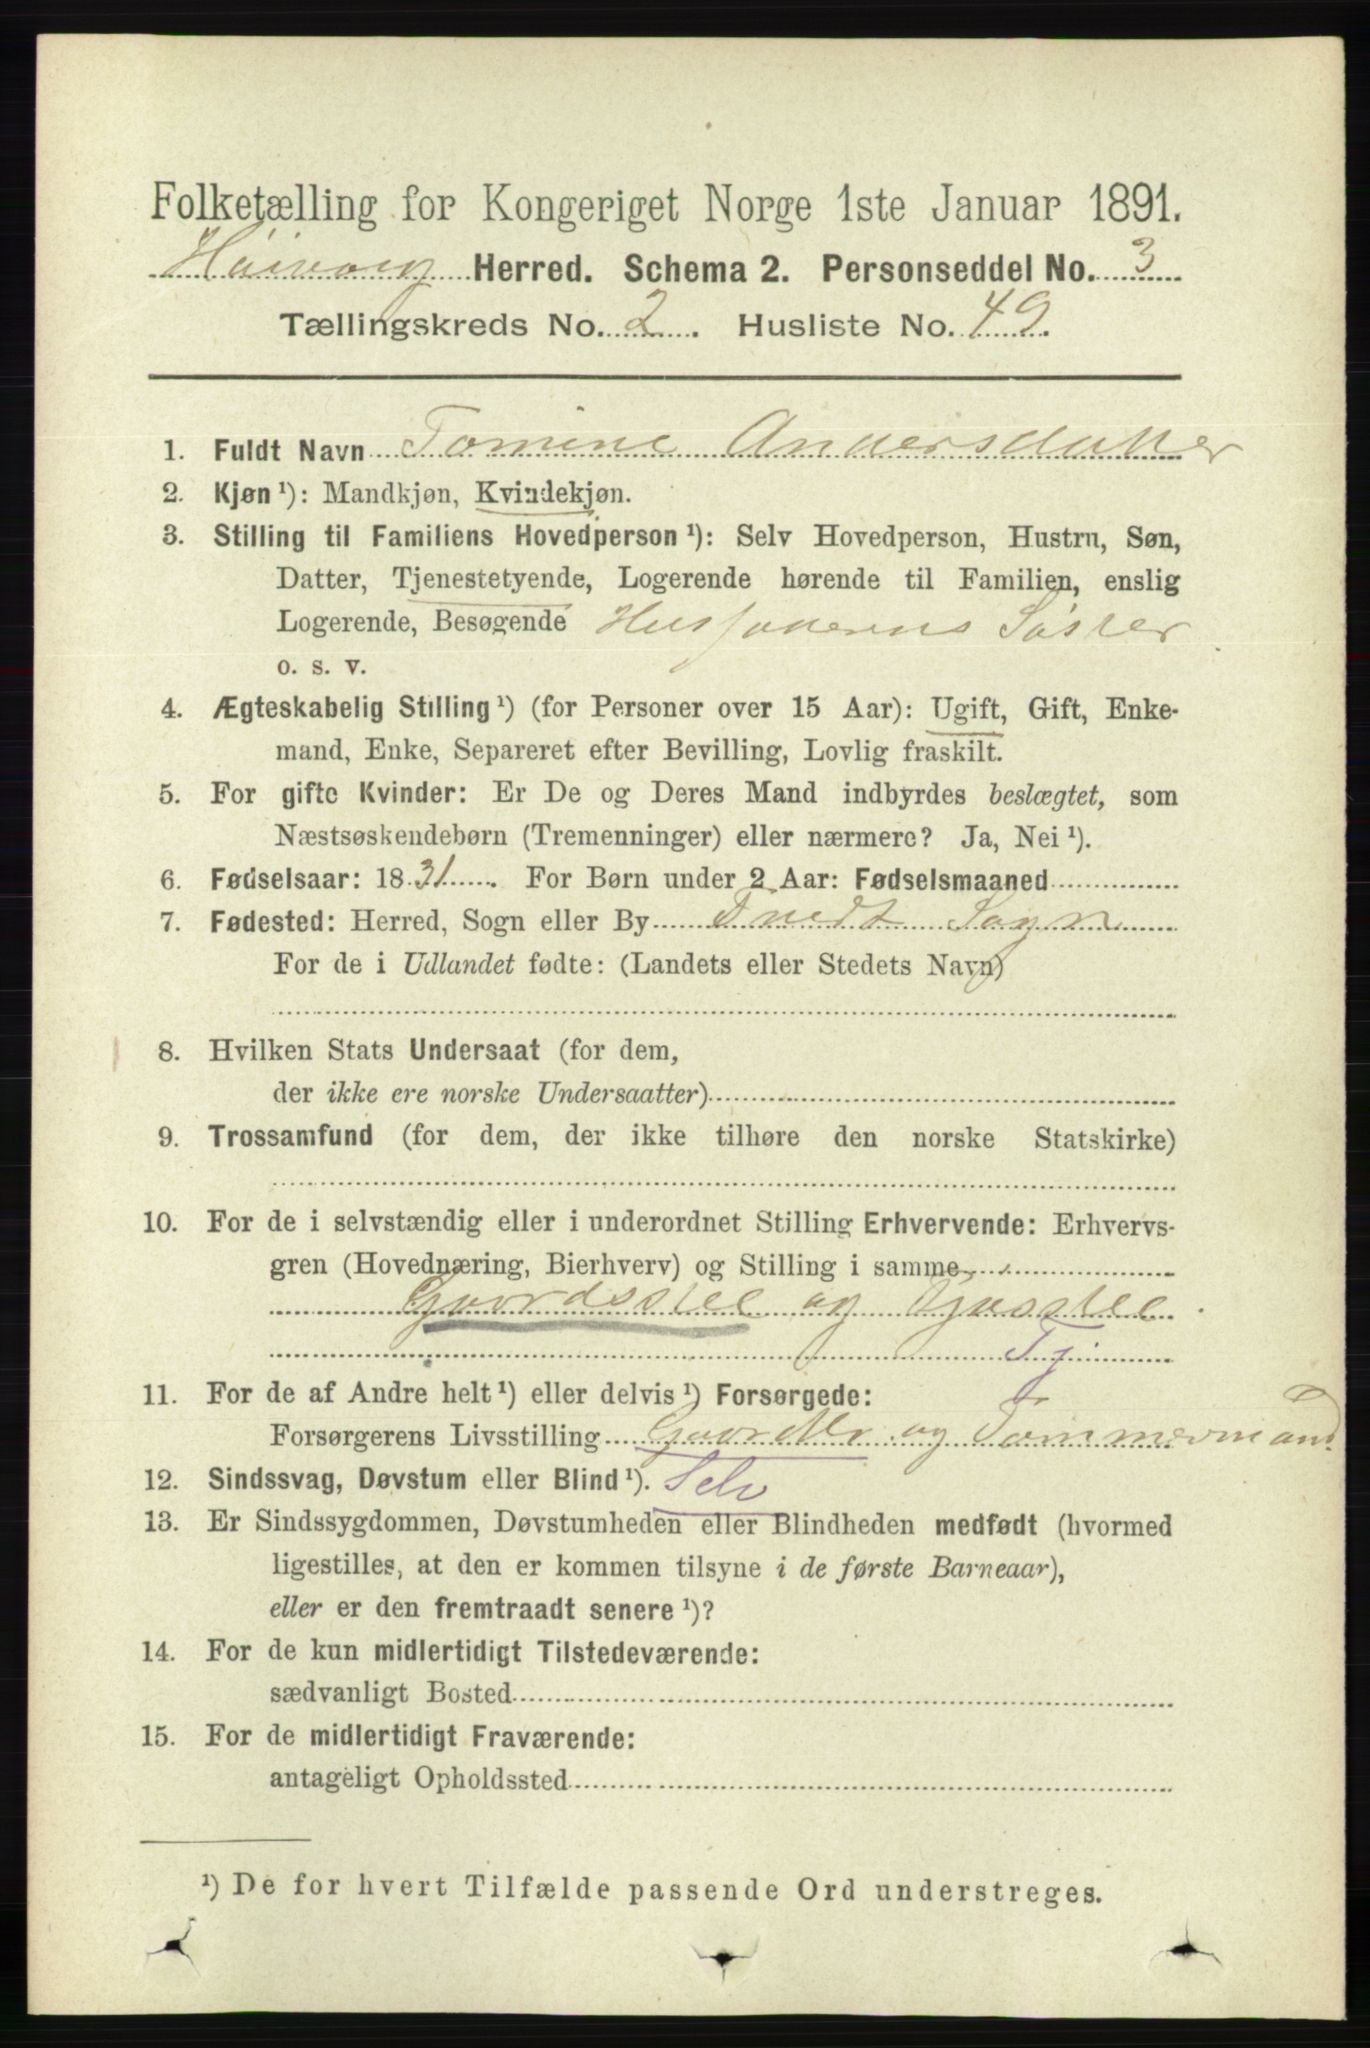 Folketælling for Kongeriget Norge 1ste Januar 1891.
Høivaag Herred. Schema 2. Personseddel No. 3
Tællingskreds No. 2. Husliste No. 49.
1. Fuldt Navn Tomine Andersdatter
2. Kjøn ¹): Mandkjøn, Kvindekjøn.
3. Stilling til Familiens Hovedperson ¹): Selv Hovedperson, Hustru, Søn,
Datter, Tjenestetyende, Logerende hørende til Familien, enslig
Logerende, Besøgende Husfaderens Søster
o. s. v.
4. Ægteskabelig Stilling ¹) (for Personer over 15 Aar): Ugift, Gift, Enke-
mand, Enke, Separeret efter Bevilling, Lovlig fraskilt.
5. For gifte Kvinder: Er De og Deres Mand indbyrdes beslægtet, som
Næstsøskendebørn (Tremenninger) eller nærmere? Ja, Nei ¹).
6. Fødselsaar: 1831. For Børn under 2 Aar: Fødselsmaaned
7. Fødested: Herred, Sogn eller By Tvedt Sogn
For de i Udlandet fødte: (Landets eller Stedets Navn)
8. Hvilken Stats Undersaat (for dem,
der ikke ere norske Undersaatter)
9. Trossamfund (for dem, der ikke tilhøre den norske Statskirke)
10. For de i selvstændig eller i underordnet Stilling Erhvervende: Erhvervs-
gren (Hovednæring, Bierhverv) og Stilling i samme
Gaardsstel og Fjøsstel.
Tj
11. For de af Andre helt ¹) eller delvis ¹) Forsørgede:
Forsørgerens Livsstilling Gaardbr og Tømmermand
12. Sindssvag, Døvstum eller Blind ¹). Selv
13. Er Sindssygdommen, Døvstumheden eller Blindheden medfødt (hvormed
ligestilles, at den er kommen tilsyne i de første Barneaar),
eller er den fremtraadt senere ¹)?
14. For de kun midlertidigt Tilstedeværende:
sædvanligt Bosted
15. For de midlertidigt Fraværende:
antageligt Opholdssted
¹) De for hvert Tilfælde passende Ord understreges.